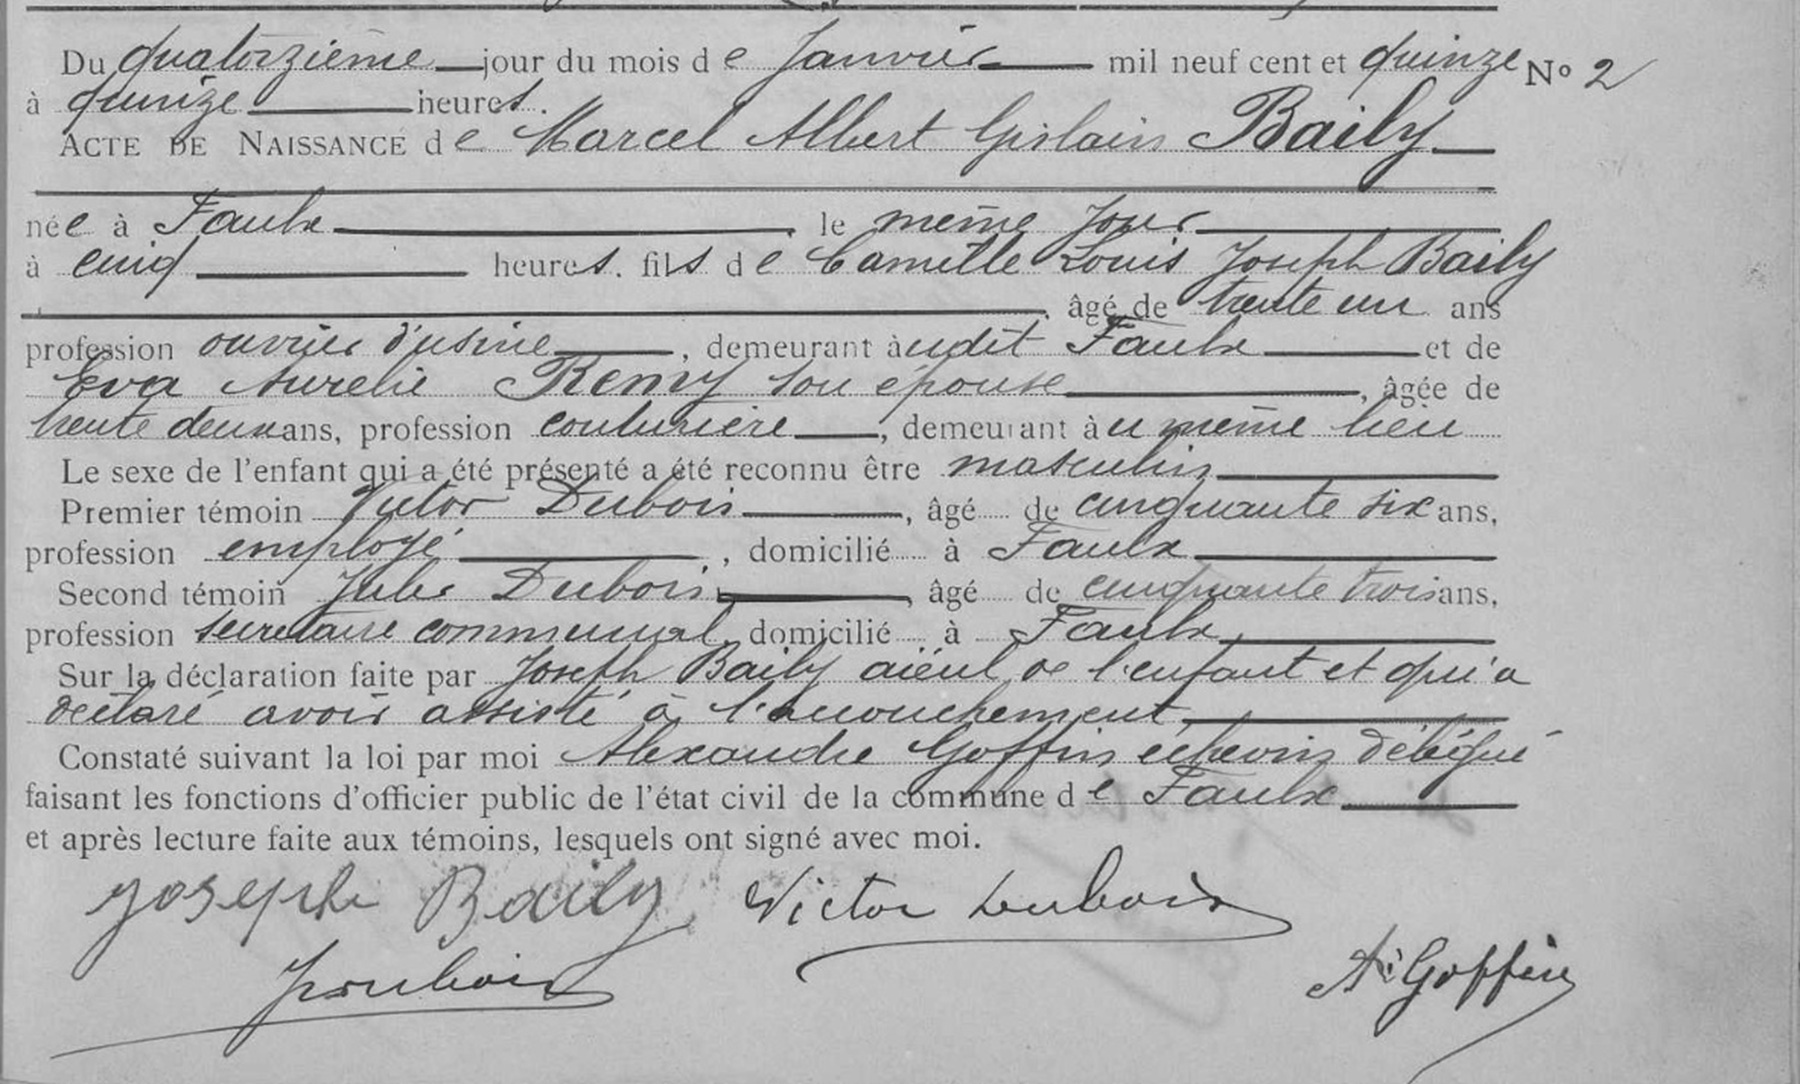 Du quatorzième jour du mois de Janvier mil neuf cent et quinze No 2
à quinze heures.
ACTE DE NAISSANCE de Marcel Albert Gislain Baily
née à Faulx, le même jour
à cinq heures. fils de Camille Louis Joseph Baily
, âgé de trente un ans
profession ouvrier d'usine, demeurant àudit Faulx et de
Eva Aurelie Remy son épouse, âgée de
trente deux ans, profession couturière, demeurant àu même lieu
Le sexe de l'enfant qui a été présenté a été reconnu être masculin
Premier témoin Victor Dubois, âgé de cinquante six ans,
profession employé, domicilié à Faulx
Second témoin Jules Dubois, âgé de cinquante trois ans,
profession secretaire communal, domicilié à Faulx
Sur la déclaration faite par Joseph Baily aïeul de l'enfant et qui a
déclaré avoir assisté à l'accouchement
Constaté suivant la loi par moi Alexandre Goffin échevin délégué
faisant les fonctions d'officier public de l'état civil de la commune de Faulx
et après lecture faite aux témoins, lesquels ont signé avec moi.
Joseph Baily Victor Dubois
JDubois A. Goffin